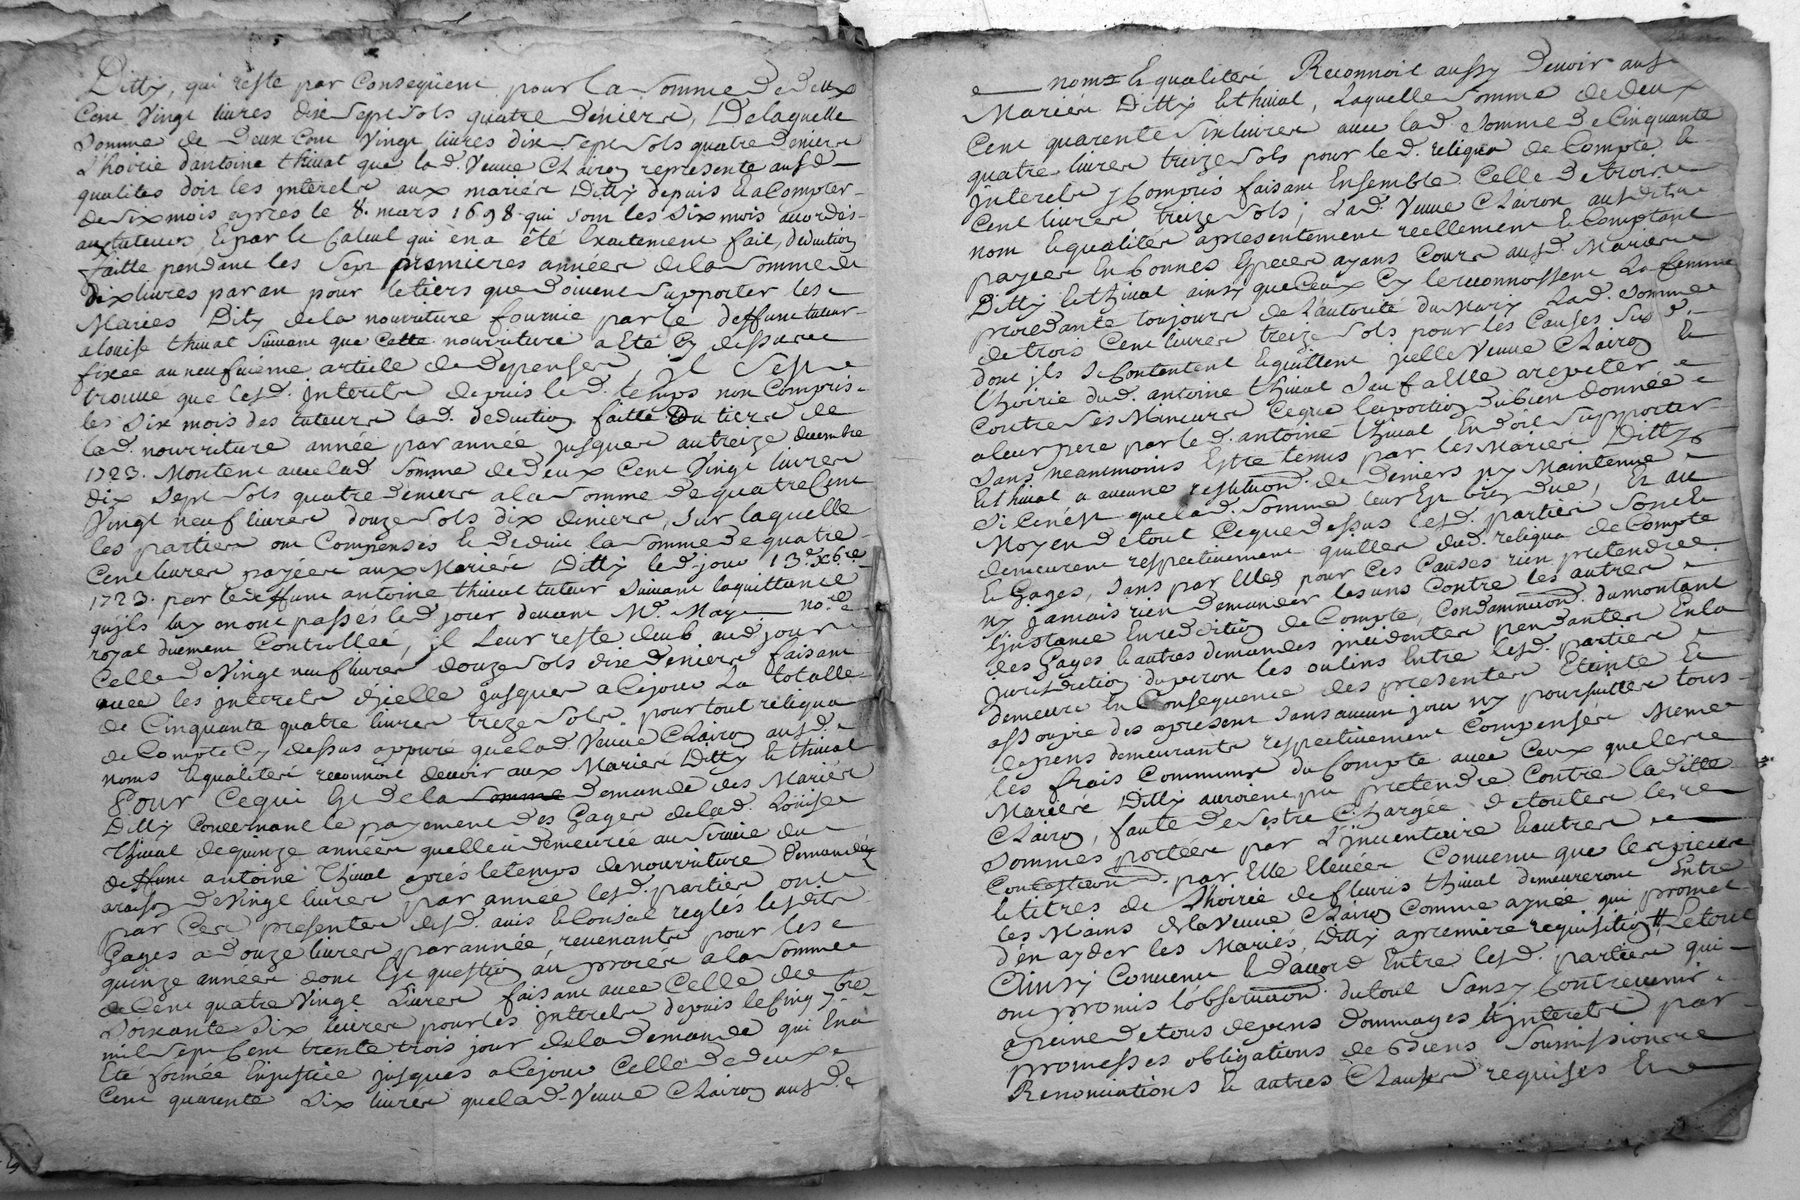 Ditty, qui reste par Consequent pour la somme de deux
Cent Vingt livres dix sept sols quatre deniers, De laquelle
somme de deux Cent Vingt livres dix sept sols quatre deniers
L'hoirie d'antoine thiuat que lad. Veuue Clairon represente ausd.
qualités doit les jnterets aux mariés Ditty depuis & a Compter
de six mois apres le 8. mars 1698. qui sont les six mois accordés
au tuteur, & par le Calcul qui en a été Exactement fait, deduction
faitte pendant les sept premieres années de la somme de
dix livres par an pour le tiers que doiuent supporter les
Mariés Ditty de la nourriture fournie par le deffunt tuteur
a louise thiuat suiuant que Cette nourriture a Eté Cy dessus
fixée au neufuieme article de depense, Il s'est
trouué que lesd. jnterets depuis led. temps non Compris
les six mois des tuteurs lad. deduction faitte Du tiers de
lad. nourriture année par année jusques au treize decembre
1723. Montent auec lad. somme de deux Cent Vingt livres
dix sept sols quatre deniers a la somme de quatre Cent
Vingt neuf livres douze sols dix deniers, sur laquelle
les parties ont Compensés & deduit la somme de quatre
Cent livres payées aux Mariés Ditty led. jour 13e. Xbre.
1723. par le deffunt antoine thiuat tuteur suiuant la quittance
qu'jls luy en ont passés led. jour deuant Me. May nore.
royal duement Controllée, jl leur reste deub aud. jour
Celle de Vingt neuf livres douze sols dix deniers faisant
auec les jnterets d'jcelle jusques a Ce jour la totalle
de Cinquante quatre livres treize sols. pour tout reliqua
de Compte Cy dessus appuré que lad. Veuue Clairon ausd.
noms & qualités reconnoit deuoir aux Mariés Ditty & thiuat
Pour Ce qui Est de la somme demande des Mariés
Ditty Concernant le payement des Gages de lad. Loüise
Thiuat de quinze années qu'elle a demeurée au seruice du
deffunt antoine Thiuat aprés le temps de nourriture demandés
a raison de Vingt livres par année lesd. parties ont
par Ces presentes desd. auis & Conseil reglés lesdits
Gages a douze livres par année, reuenants pour les
quinze années dont Est question au proces a la somme
de Cent quatre Vingt Livres faisant auec Celle de
soixante six livres pour les jnterets depuis le Cinq 7bre.
mil sept Cent trente trois jour de la demande qui En a
Eté formée En justice jusques a Ce jour Celle de deux
Cent quarente six livres que lad. Veuue Clairon ausd.
noms & qualités Reconnoit aussy Deuoir ausd.
Mariés Ditty & thiuat, Laquelle somme de deux
Cent quarente six livres auec lad. somme de Cinquante
quatre livres treize sols pour led. reliqua de Compte &
jnterets y Compris faisant Ensemble Celle de trois
Cent livres treize sols; Lad. Veuue Clairon ausdits
nom & qualités a presentement réellement & Comptant
payées En bonnes Especes ayans Cours ausd. Mariés
Ditty & thiuat ainsy que Ceux Cy le reconnoissent La femme
procedante toujours de L'autorité du Mary Lad. somme
de trois Cent livres treize sols pour les Causes sus d.
dont jls se Contentent & quittent jcelle Veuue Clairon &
l'hoirie dud. antoine thiuat sauf a Elle a repeter
Contre ses Mineurs Ce que la portion du bien donnée
a leur pere par led. antoine thiuat En doit supporter
sans neantmoins Estre tenus par les Mariés Ditty
& thiuat a aucune restitution de deniers ny Maintenue
si Ce n'est que lad. somme leur Est bien due, Et au
Moyen de tout Ce que dessus lesd. parties sont &
demeurent respectiuement quittes dud. reliqua de Compte
& Gages, sans par Elles pour Ces Causes rien pretendre
ny jamais rien demander les uns Contre les autres
L'jnstance En reddition de Compte, Condamnation du montant
des Gages & autres demandes jncidentes pendantes En la
jurisdiction du peron les oulins Entre lesd. parties
demeure En Consequence des presentes Eteinte &
assoupie des apresent sans aucun jour n'y poursuittes tous
depens demeurants respectiuement Compensés Meme
les frais Communs du Compte auec Ceux que lesd.
Mariés Ditty auroient pu pretendre Contre laditte
Clairon, faute de s'estre Chargée de toutes les
sommes portées par L'jnuentaire & autres
par Elle Eleuées Conuenu que les pieces
& titres de L'hoirie de fleuris thiuat demeureront Entre
les Mains de la Veuue Clairon Comme aynée qui promet
d'en ayder les Mariés Ditty a premiere requisition Le tout
Ainsy Conuenu & d'accord Entre lesd. parties qui
ont promis l'obseruation du tout sans y Contreuenir
a peine de tous depens Dommages & jnterets par
promesses obligations de Biens soumissions
Renonciations & autres Clauses requises &